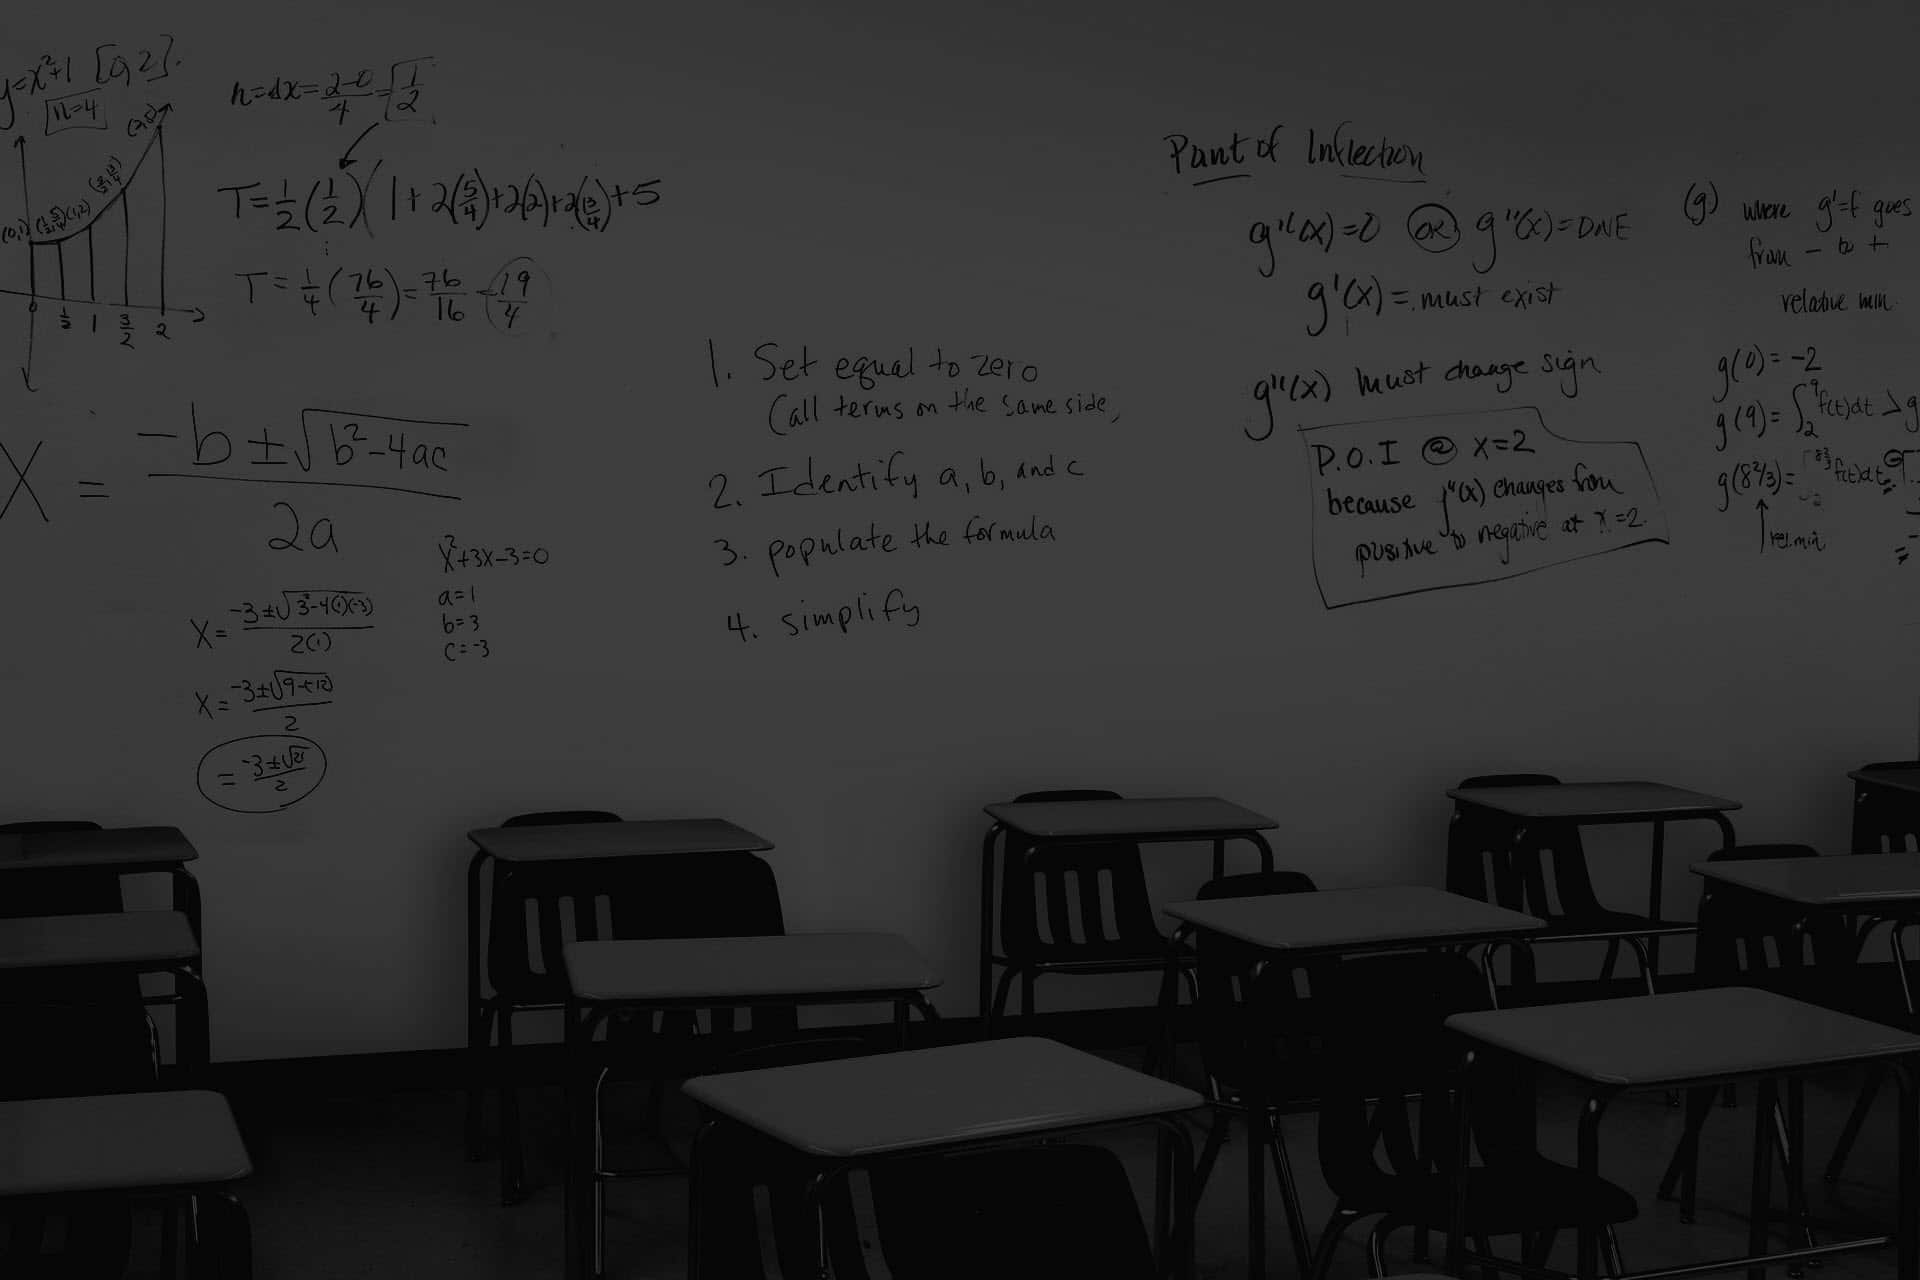 y=x²+1 [0,2].
n=4
(2,5)
(3/2, 13/4)
(0,1) (1/2, 5/4) (1,2)
0 1/2 1 3/2 2
h=Δx=2-0/4=1/2
T=1/2(1/2)(1+2(5/4)+2(2)+2(13/4)+5
T=1/4(76/4)=76/16=19/4
X = -b±√b²-4ac/2a
x²+3x-3=0
a=1
b=3
c=-3
X=-3±√3²-4(1)(-3)/2(1)
X=-3±√9-(-12)/2
=-3±√21/2
1. Set equal to zero
(all terms on the same side)
2. Identify a, b, and c
3. populate the formula
4. simplify
Point of Inflection
g''(x)=0 OR g''(x)=DNE
g'(x)= must exist
g''(x) must change sign
P.O.I @ x=2
because f''(x) changes from
positive to negative at x=2.
(g) where g'=f goes
from - to +
relative min
g(0)=-2
g(9)=∫₂⁹f(t)dt > g
g(8 2/3)= f(t)dt
rel.min